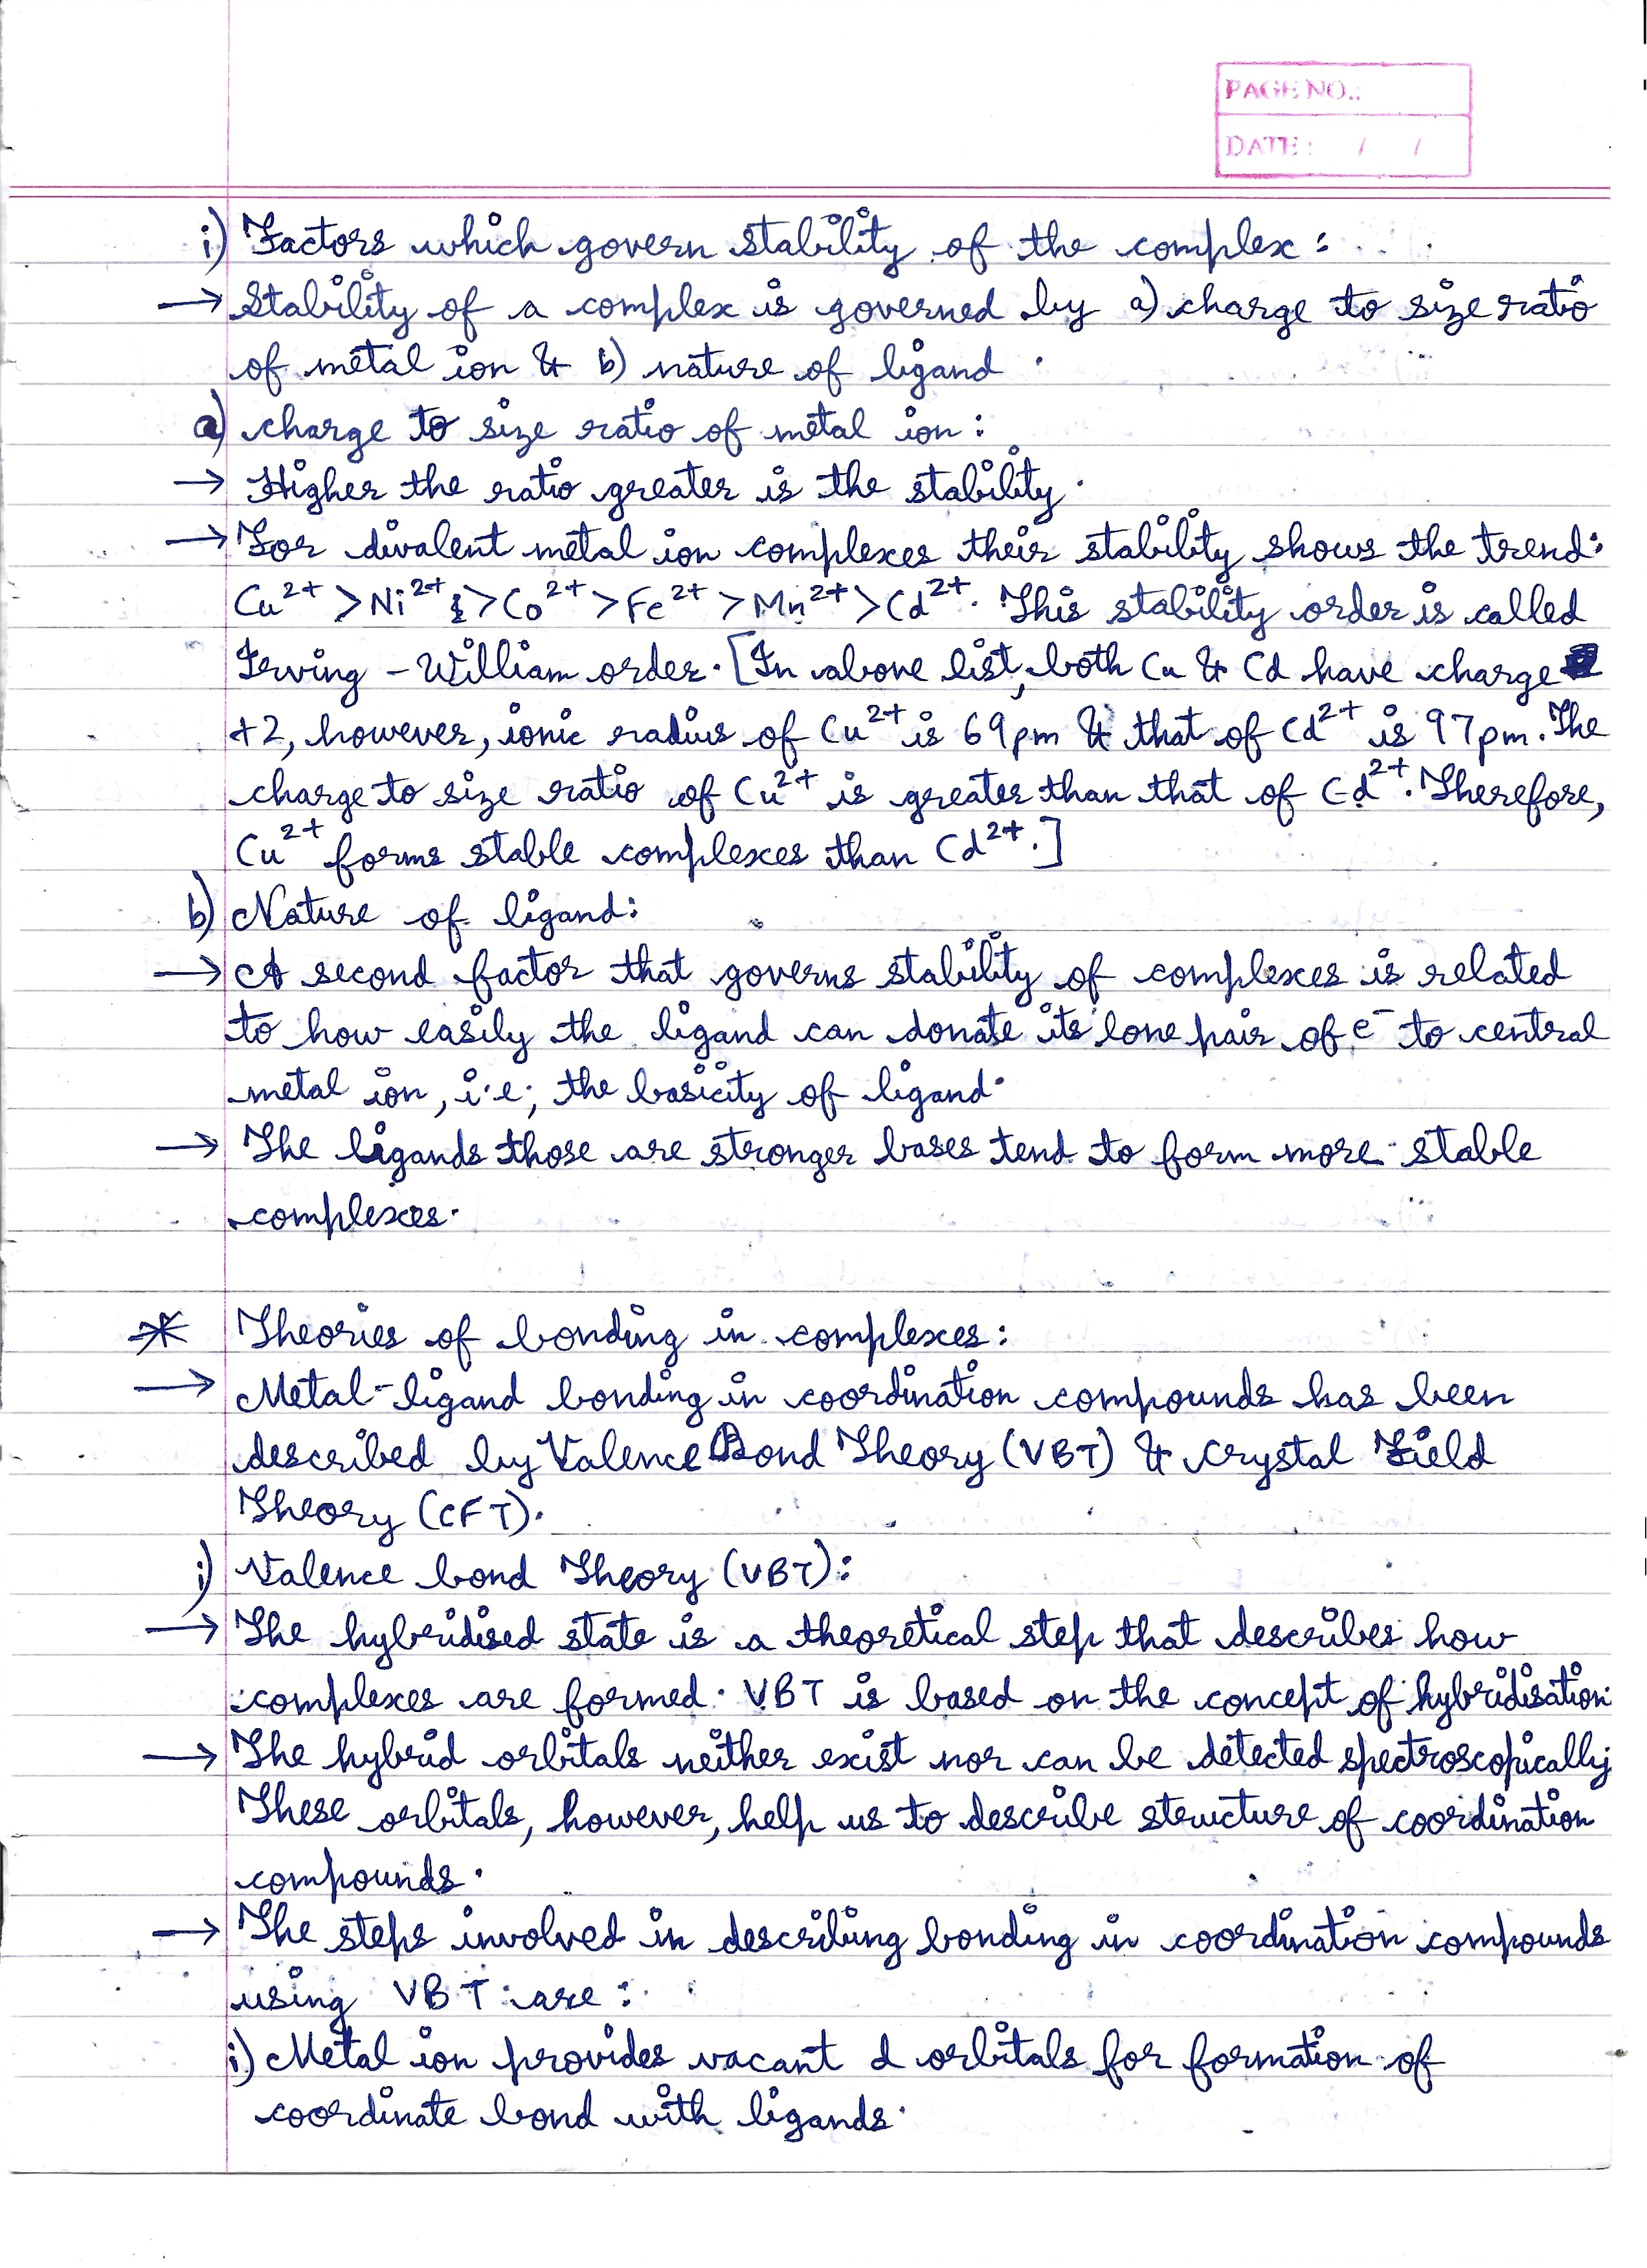 PAGE NO.:
DATE: / /
i) Factors which govern stability of the complex:
→ Stability of a complex is governed by a) charge to size ratio
of metal ion & b) nature of ligand.
a) charge to size ratio of metal ion:
→ Higher the ratio greater is the stability.
→ For divalent metal ion complexes their stability shows the trend:
Cu²⁺ > Ni²⁺ > Co²⁺ > Fe²⁺ > Mn²⁺ > Cd²⁺. This stability order is called
Irving - William order. [In above list, both Cu & Cd have charge
+2, however, ionic radius of Cu²⁺ is 69pm & that of Cd²⁺ is 97pm. The
charge to size ratio of Cu²⁺ is greater than that of Cd²⁺. Therefore,
Cu²⁺ forms stable complexes than Cd²⁺.]
b) Nature of ligand:
→ A second factor that governs stability of complexes is related
to how easily the ligand can donate its lone pair of e⁻ to central
metal ion, i.e; the basicity of ligand.
→ The ligands those are stronger bases tend to form more stable
complexes.
* Theories of bonding in complexes:
→ Metal-ligand bonding in coordination compounds has been
described by Valence Bond Theory (VBT) & Crystal Field
Theory (CFT).
i) Valence bond Theory (VBT):
→ The hybridised state is a theoretical step that describes how
complexes are formed. VBT is based on the concept of hybridisation.
→ The hybrid orbitals neither exist nor can be detected spectroscopically.
These orbitals, however, help us to describe structure of coordination
compounds.
→ The steps involved in describing bonding in coordination compounds
using VBT are:
i) Metal ion provides vacant d orbitals for formation of
coordinate bond with ligands.